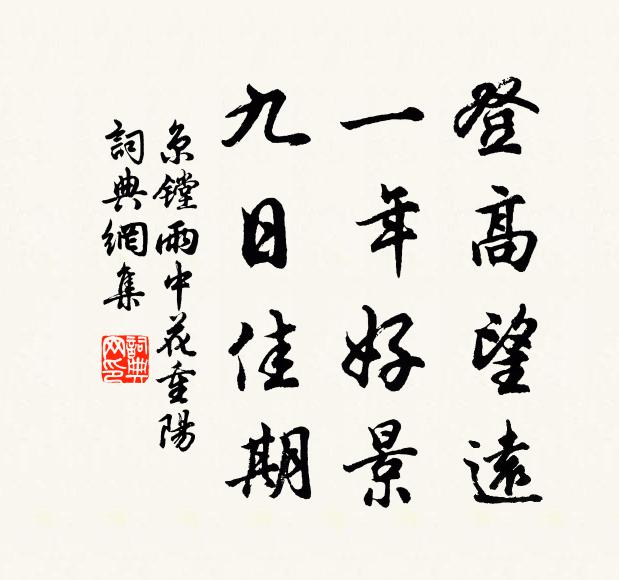 登高望遠
一年好景
九日佳期
京鏜雨中花重陽
詞典網集
詞典
网印